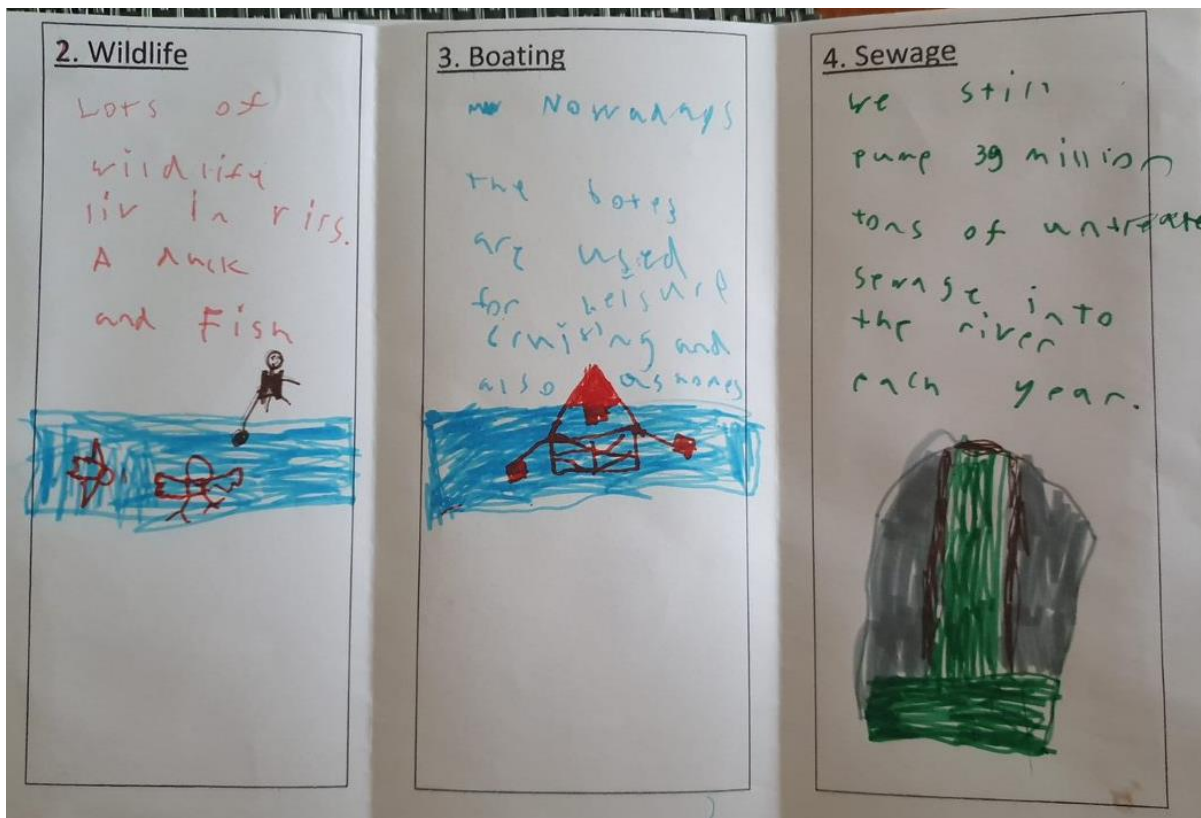 2. Wildlife
Lots of
wildlife
liv in rirs.
A duck
and Fish
3. Boating
Nowadays
the botes
are used
for Leisure
cruising and
also as homes
4. Sewage
we still
pump 39 million
tons of untreate
sewage into
the river
each year.